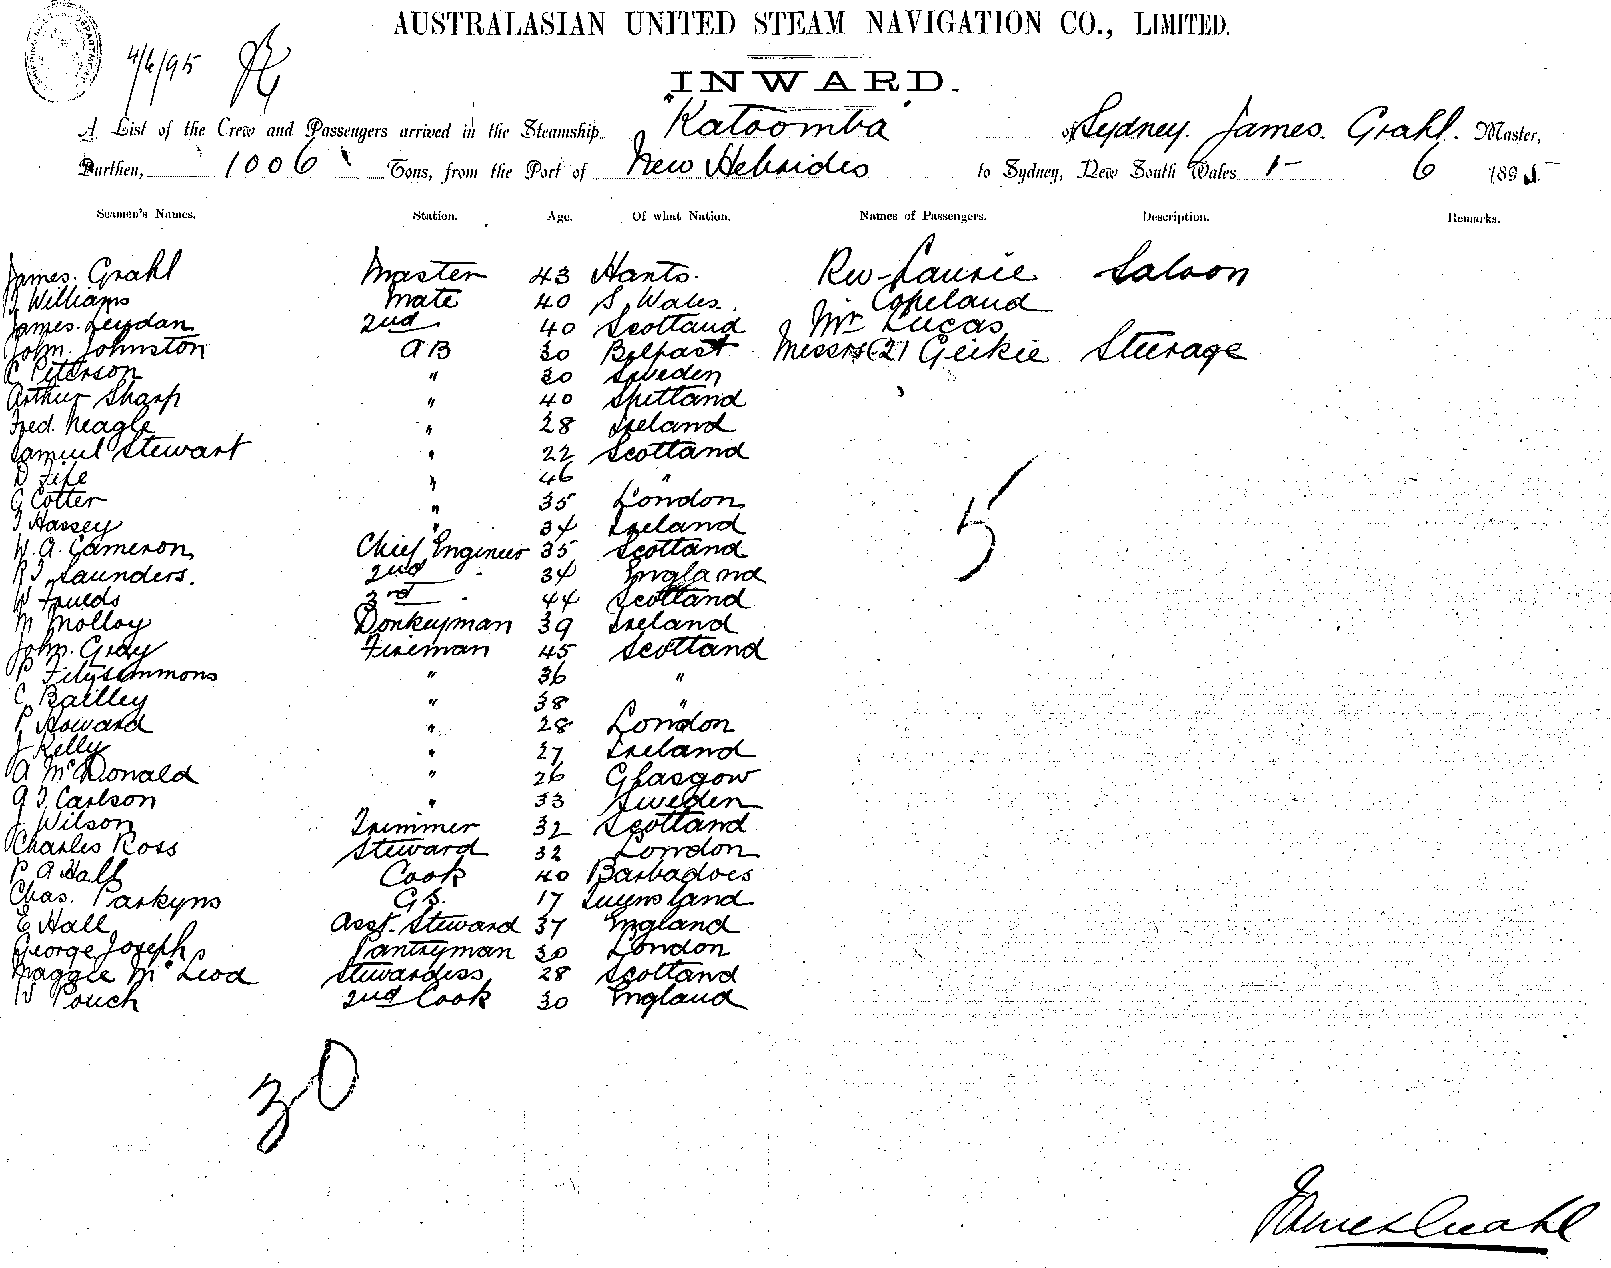 AUSTRALASIAN UNITED STEAM NAVIGATION CO., LIMITED.
4/6/95
INWARD.
A List of the Crew and Passengers arrived in the Steamship "Katoomba" of Sydney. James. Grahl. Master,
Burthen, 1006 Tons, from the Port of New Hebrides to Sydney, New South Wales 1- 6 1895
Seamen's Names. Station. Age. Of what Nation. Names of Passengers. Description. Remarks.
James. Grahl Master 43 Hants. Rev Laurie Saloon
J Williams Mate 40 S. Wales. Copeland
James. Leydan 2nd 40 Scotland Mr Lucas
John. Johnston AB 30 Belfast Messrs (2) Geikie Steerage
C Peterson " 30 Sweden
Arthur Sharp " 40 Shetland
Fred. Neagle " 28 Ireland
Samuel Stewart " 22 Scotland
D Fife " 46 "
G Cotter " 35 London
T Hassey " 34 Ireland
W. A. Cameron Chief Engineer 35 Scotland
R J Saunders. 2nd 34 England
W Foulds 3rd 44 Scotland
M Molloy Donkeyman 39 Ireland
John. Gray Fireman 45 Scotland
P Fitzsimmons " 36 "
C Bailley " 38 "
P Howard " 28 London
J Kelly " 27 Ireland
A McDonald " 26 Glasgow
A J Carlson " 33 Sweden
J Wilson Trimmer 32 Scotland
Charles Ross Steward 32 London
P A Hall Cook 40 Barbadoes
Chas. Parkyns G S. 17 Queensland
E Hall Asst. Steward 37 England
George Joseph Pantryman 30 London
Maggie McLeod Stewardess 28 Scotland
W Pouch 2nd Cook 30 England
5
30
James Grahl